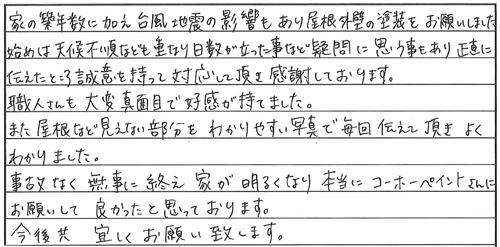 家の築年数に加え台風地震の影響もあり屋根外壁の塗装をお願いしました
始めは天候不順なども重なり日数が立った事など疑問に思う事もあり正直に
伝えたところ誠意を持って対応して頂き感謝しております。
職人さんも大変真面目で好感が持てました。
また屋根など見えない部分をわかりやすい写真で毎回伝えて頂きよく
わかりました。
事故なく無事に終え家が明るくなり本当にコーホーペイントさんに
お願いして良かったと思っております。
今後共宜しくお願い致します。